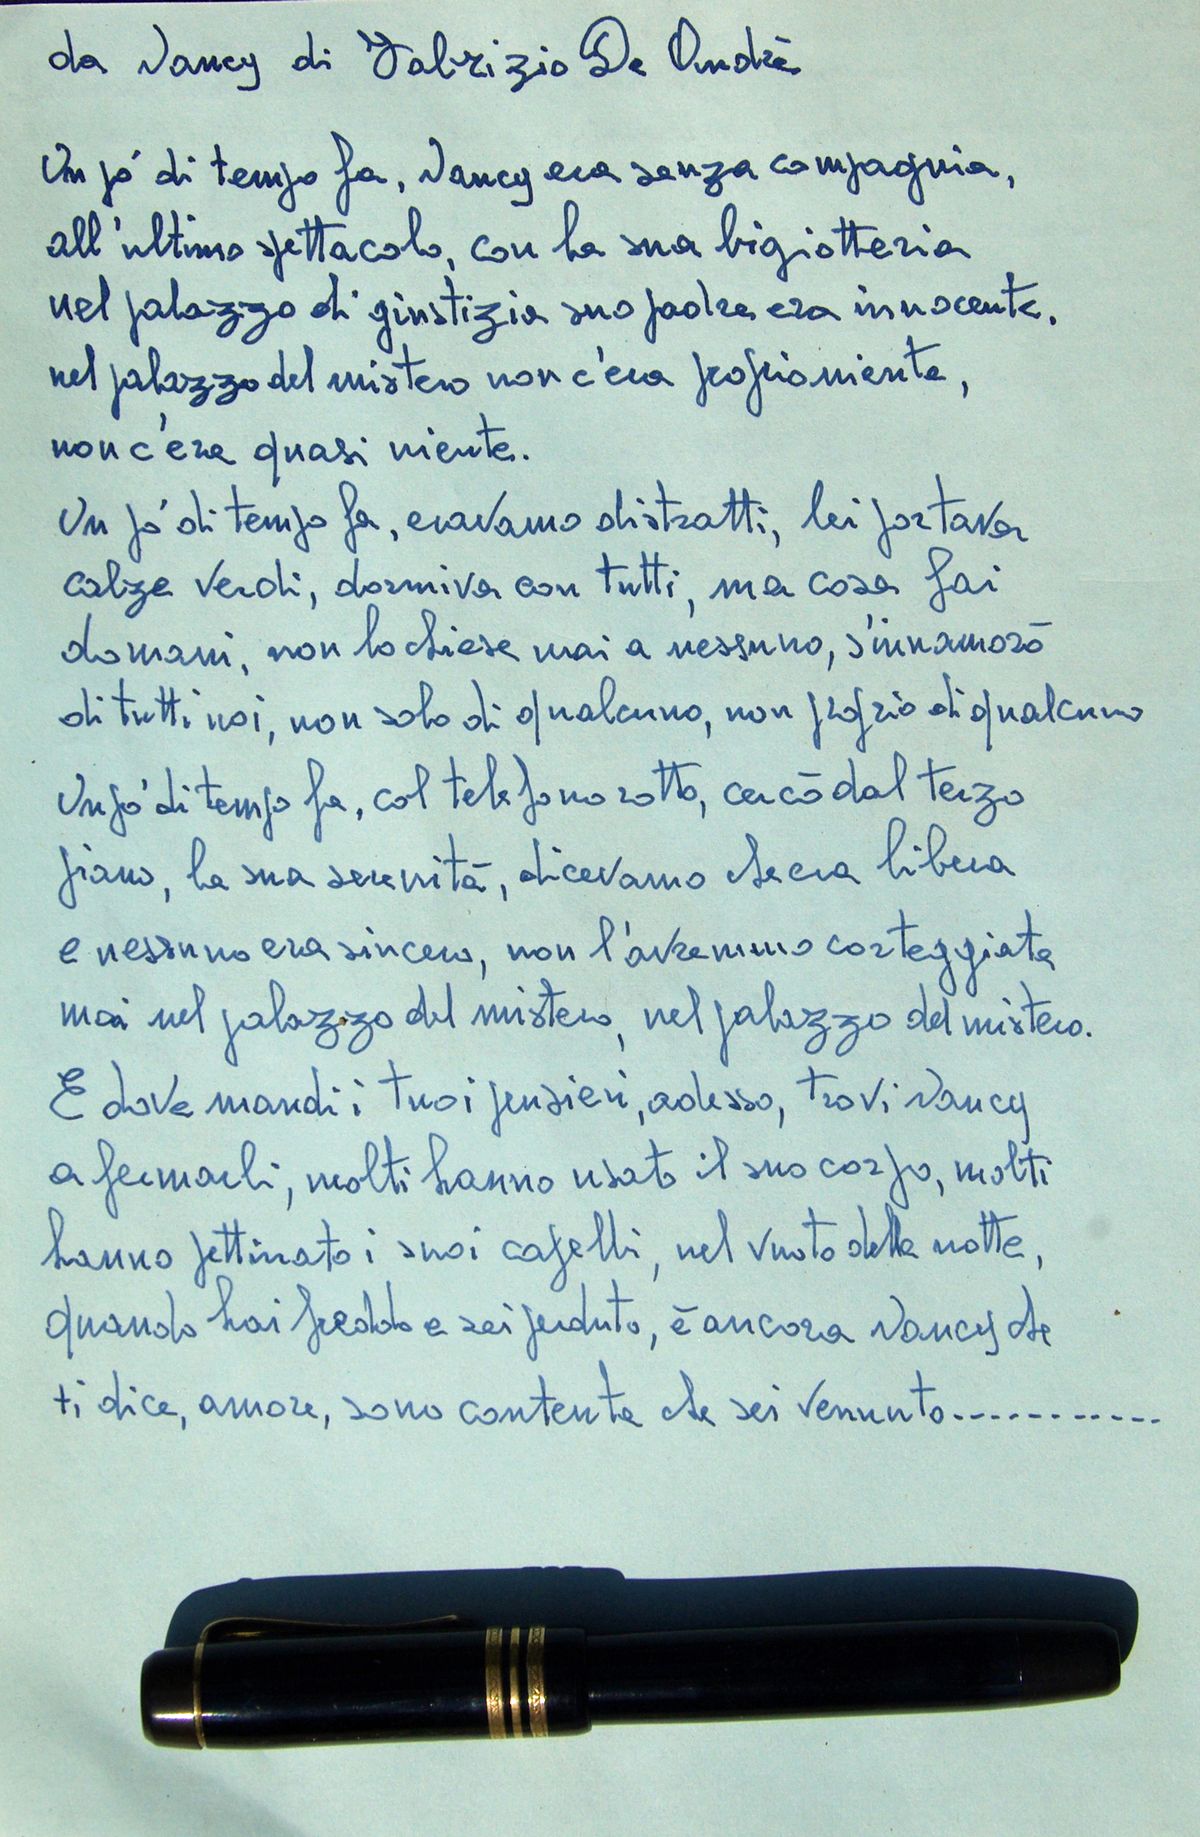 da Nancy di Fabrizio De Andrè
Un pò di tempo fa, Nancy era senza compagnia,
all'ultimo spettacolo, con la sua bigiotteria
nel palazzo di giustizia suo padre era innocente.
nel palazzo del mistero non c'era proprio niente,
non c'era quasi niente.
Un pò di tempo fa, eravamo distratti, lei portava
calze verdi, dormiva con tutti, ma cosa fai
domani, non lo chiese mai a nessuno, s'innamorò
di tutti noi, non solo di qualcuno, non proprio di qualcuno
Un pò di tempo fa, col telefono rotto, cercò dal terzo
piano, la sua serenità, dicevamo che era libera
e nessuno era sincero, non l'avremmo corteggiata
mai nel palazzo del mistero, nel palazzo del mistero.
E dove mandi i tuoi pensieri, adesso, trovi Nancy
a fermarli, molti hanno usato il suo corpo, molti
hanno pettinato i suoi capelli, nel vuoto della notte,
quando hai freddo e sei perduto, è ancora Nancy che
ti dice, amore, sono contenta che sei venunto...........